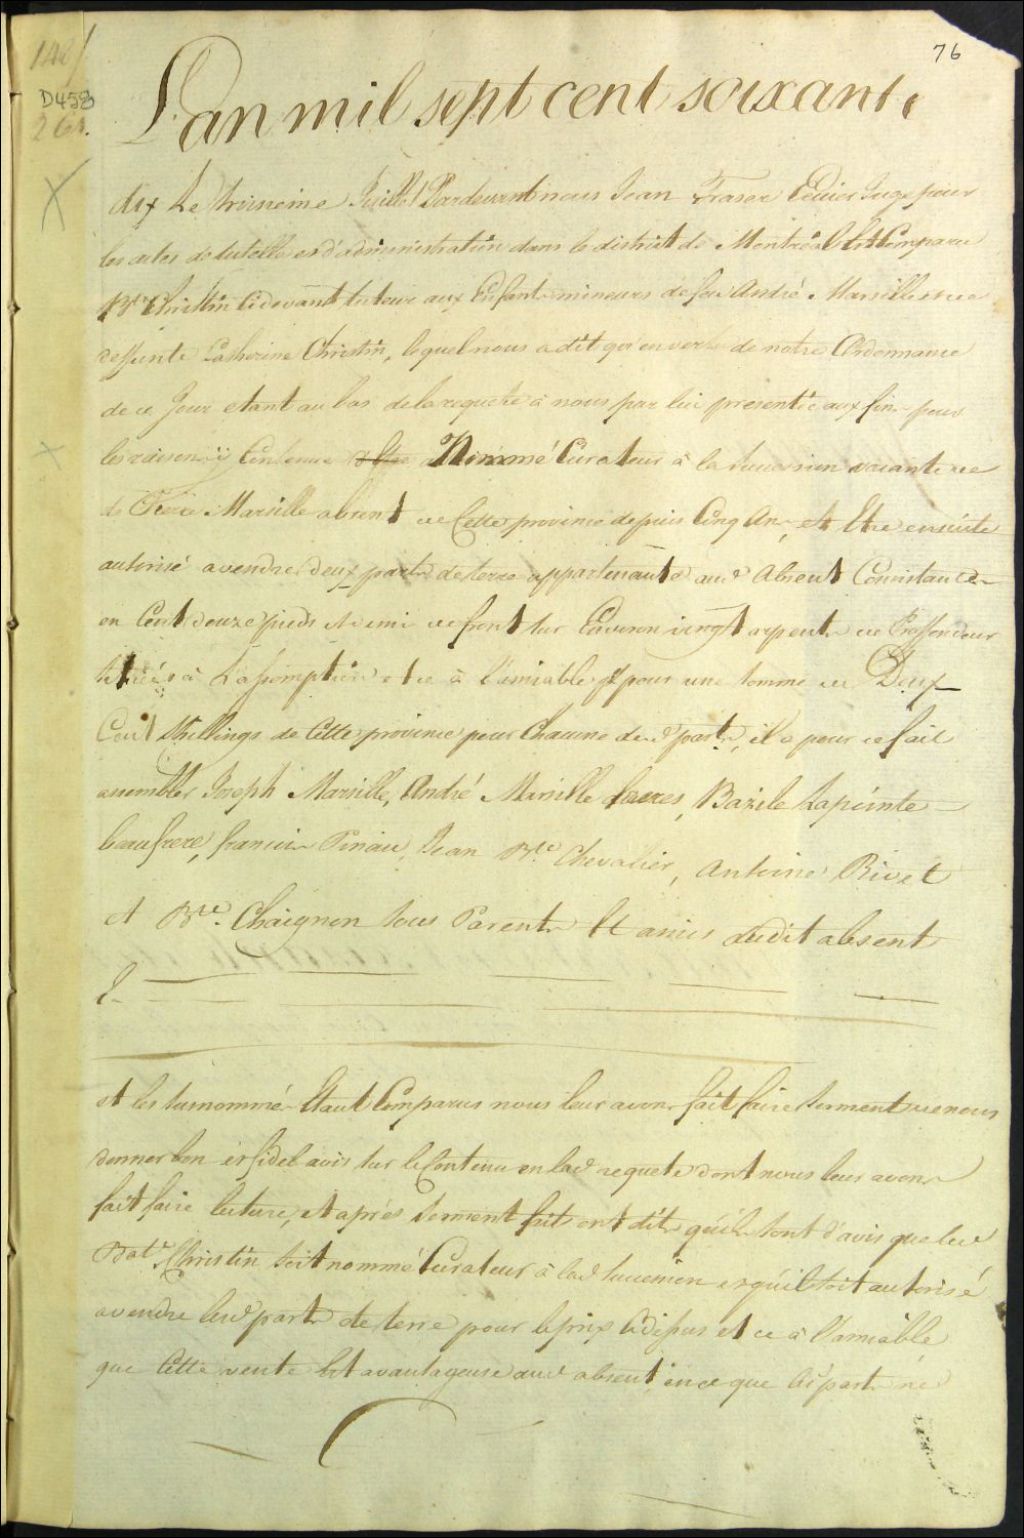 76
148
D458
264.
L'an mil sept cent soixante
dix Le troisieme Juillet Pardevant nous Jean Fraser Ecuier Juge pour
les actes de tutelle et d'administration dans le district de Montréal Est Comparu
Bte Christin Cidevant tuteur aux Enfants mineurs de feu André Marsille et de
deffunte Catherine Christin, lequel nous a dit qu'en vertu de notre Ordonnance
de ce Jour etant au bas de la requete à nous par lui presentée aux fins pour
les raisons ÿ Contenues Nommé Curateur à la succession vacante de
Marsille absent de Cette province depuis Cinq Ans, et Etre ensuite
autorisé a vendre deux parts de terre appartenants aud Absent Consistance
en Cent douze pieds et demi de front sur Environ vingt arpents de Proffondeur
situées à L'assomption et ce à l'amiable et pour une somme de Deux
Cent Shillings de Cette province pour Chacune desd parts, il a pour ce fait
assembler Joseph Marsille, André Marsille freres, Bazile Lapointe
beaufrere, francois Pinau, Jean Bte Chevalier, Antoine Rivet
et Bte. Chaignon tous Parents Et amis dudit absent
et les susnommés Etant Comparus nous leur avons fait faire serment de nous
donner bon et fidel avis sur le Contenu en lad requete dont nous leur avons
fait faire lecture, et après serment fait ont dit qu'ils sont d'avis que led
Bate Christin soit nommé Curateur à lad succession et qu'il soit autorisé
a vendre lesd parts de terre pour le prix cidessus et ce à l'amiable
que Cette vente Est avantageuse aud absent en ce que les parts ne